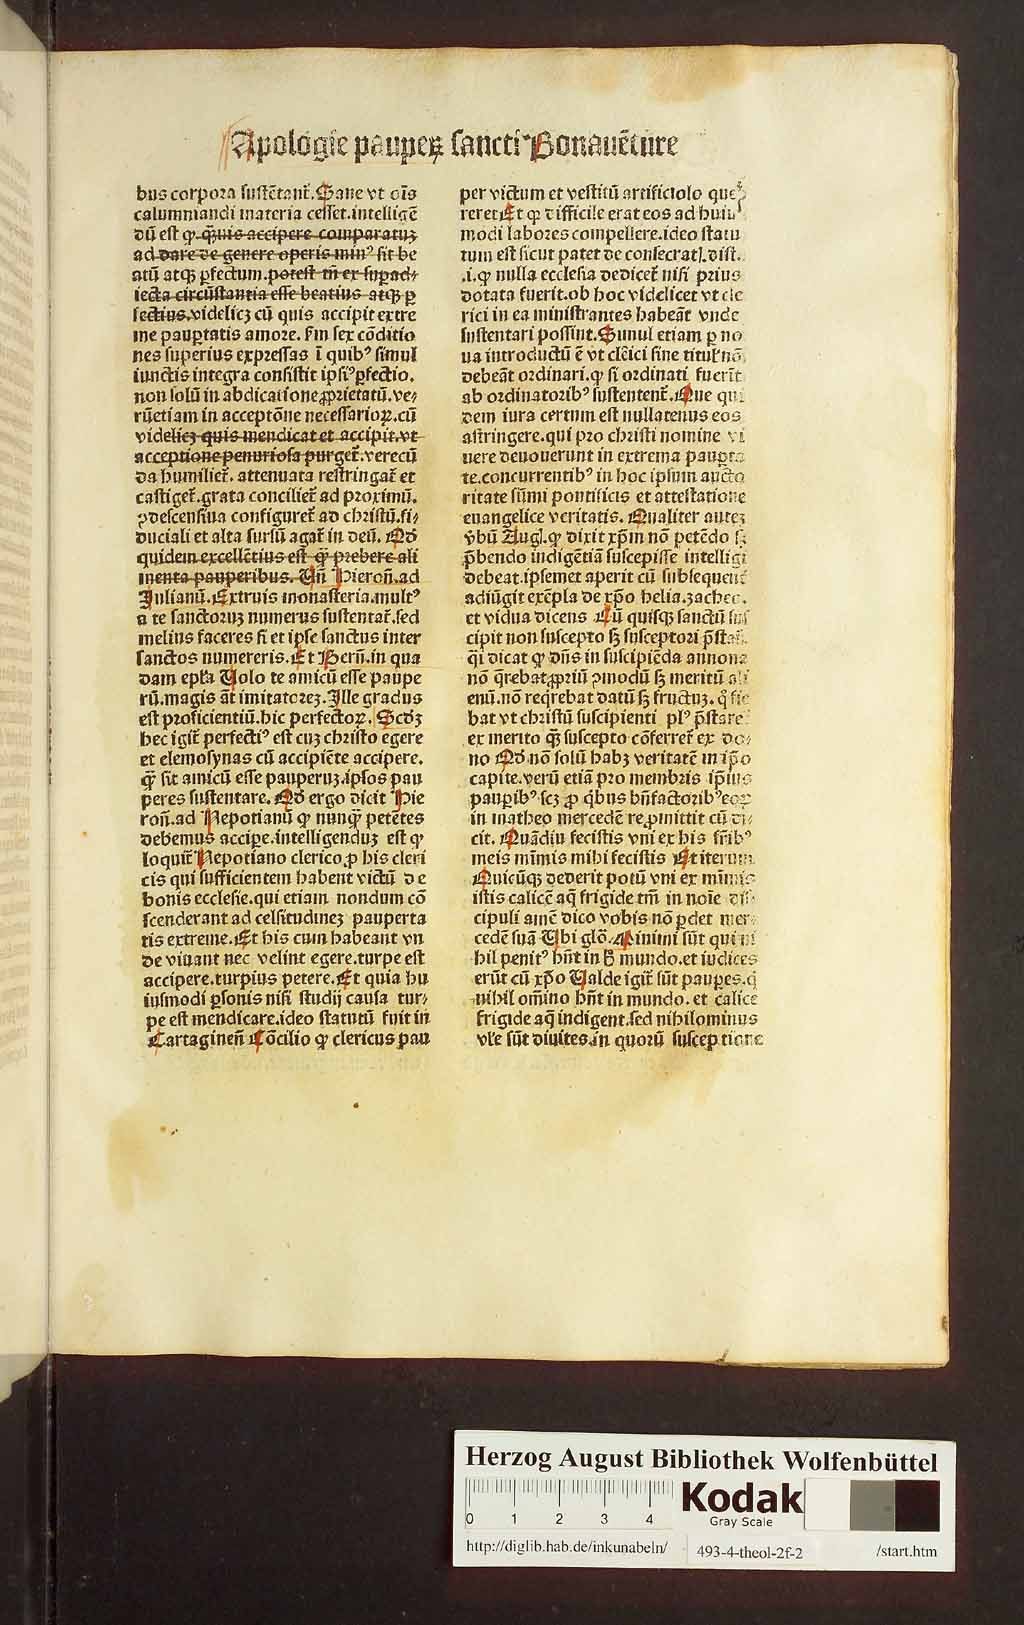 Apologie pauperꝝ sancti Bonauēture
bus corpora sustētant᷑. Sane vt oīs
calumniandi materia cesset. intelligē
dū est ꝙ q̄muis accipere comparatuꝫ
ad dare de genere operis minꝰ sit be
atū atqꝫ ꝑfectum. potest tn̄ ex suprad⸗
iecta circūstantia esse beatius atqꝫ ꝑ
fectius. videlicꝫ cū quis accipit extre
me pauꝑtatis amore. Fm sex cōditio
nes superius expressas ī quibꝰ simul
iunctis integra consistit ipsiꝰ ꝑfectio.
non solū in abdicatione ꝓprietatū. ve⸗
rūetiam in acceptōne necessarioꝝ. cū
videlicꝫ quis mendicat et accipit. vt
acceptione penuriosa purget᷑. verecū
da humiliet᷑. attenuata restringat᷑ et
castiget᷑. grata conciliet᷑ ad proximū.
ꝯdescensiua configuret᷑ ad christū. fi⸗
duciali et alta sursū agat᷑ in deū. Qd̄
quidem excellētius est q̄ꝫ prebere ali
menta pauperibus. Vn̄ Hieron̄. ad
Julianū. Extruis monasteria. multꝰ
a te sanctoruꝫ numerus sustentat᷑. sed
melius faceres si et ipse sanctus inter
sanctos numereris. Et Bern̄. in qua
dam epl̄a Volo te amicū esse paupe
rū. magis aūt imitatoreꝫ. Ille gradus
est proficientiū. hic perfectoꝝ. Scdꝫ
hec igit᷑ perfectiꝰ est cuꝫ christo egere
et elemosynas cū accipiēte accipere.
q̄ꝫ sit amicū esse pauperuꝫ. ipsos pau
peres sustentare. Qd̄ ergo dicit Hie
ron̄. ad Nepotianū ꝙ nunq̄ꝫ petētes
debemus accipe. intelligenduꝫ est ꝙ
loquit᷑ Nepotiano clerico ꝓ his cleri
cis qui sufficientem habent victū de
bonis ecclesie. qui etiam nondum cō
scenderant ad celsitudineꝫ pauperta
tis extreme. Et his cum habeant vn
de viuant nec velint egere. turpe est
accipere. turpius petere. Et quia hu
iusmodi ꝑsonis nisi studij causa tur⸗
pe est mendicare. ideo statutū fuit in
Cartaginen̄ Cōcilio ꝙ clericus pau
per victum et vestitū artificiolo que
reret Et ꝙ difficile erat eos ad huiꝰ
modi labores compellere. ideo statu
tum est sicut patet de consecratꝭ. dist.
.i. ꝙ nulla ecclesia dedicet᷑ nisi prius
dotata fuerit. ob hoc videlicet vt cle
rici in ea ministrantes habeāt vnde
sustentari possint. Simul etiam ꝑ no
ua introductū ē vt cleīci sine titul᷑ nō
debeāt ordinari. ꝙ si ordinati fuerīt
ab ordinatoribꝰ sustentent᷑. Que qui
dem iura certum est nullatenus eos
astringere. qui pro christi nomine vi
uere deuouerunt in extrema pauꝑta
te. concurrentibꝰ in hoc ipsum aucto
ritate sūmi pontificis et attestatione
euangelice veritatis. Qualiter auteꝫ
v̄bū Augꝭ. ꝙ dixit xp̄m nō petēdo sꝫ
p̄bendo indigētiā suscepisse intelligi
debeat. ipsemet aperit cū subsequent᷑
adiūgit exēpla de xp̄o helia. zacheo.
et vidua dicens Cū quisqꝫ sanctū sus
cipit non suscepto sꝫ susceptori p̄stat᷑.
q̄i dicat ꝙ dn̄s in suscipiēda annona
nō q̄rebat ꝓpriū ꝯmodū sꝫ meritū ali
enū. nō req̄rebat datū sꝫ fructuꝫ. q̄ fie
bat vt christū suscipienti plꝰ p̄stare᷑
ex merito q̄ꝫ suscepto cōferret᷑ ex do⸗
no Qd̄ nō solū habꝫ veritatē in ip̄o
capite. verū etiā pro membris ip̄ius
pauꝑibꝰ. scꝫ ꝓ q̄bus bn̄factoribꝰ eoꝝ
in matheo mercedē repromittit cū di⸗
cit. Quādiu fecistis vni ex his fr̄ibꝰ
meis minimis mihi fecistis Et iterum
Quicūqꝫ dederit potū vni ex minimis
istis calicē aq̄ frigide tm̄ in noīe dis
cipuli amē dico vobis nō ꝑdet mer⸗
cedē suā Vbi glo. Minimi sūt qui ni
hil penitꝰ hn̄t in hͦ mundo. et iudices
erūt cū xp̄o Valde igit᷑ sūt pauꝑes. q̄
nihil om̄ino hn̄t in mundo. et calice
frigide aq̄ indigent. sed nihilominus
vl̓e sūt diuites. in quorū susceptione
Herzog August Bibliothek Wolfenbüttel
0 1 2 3 4
Kodak
Gray Scale
http://diglib.hab.de/inkunabeln/ 493-4-theol-2f-2 /start.htm